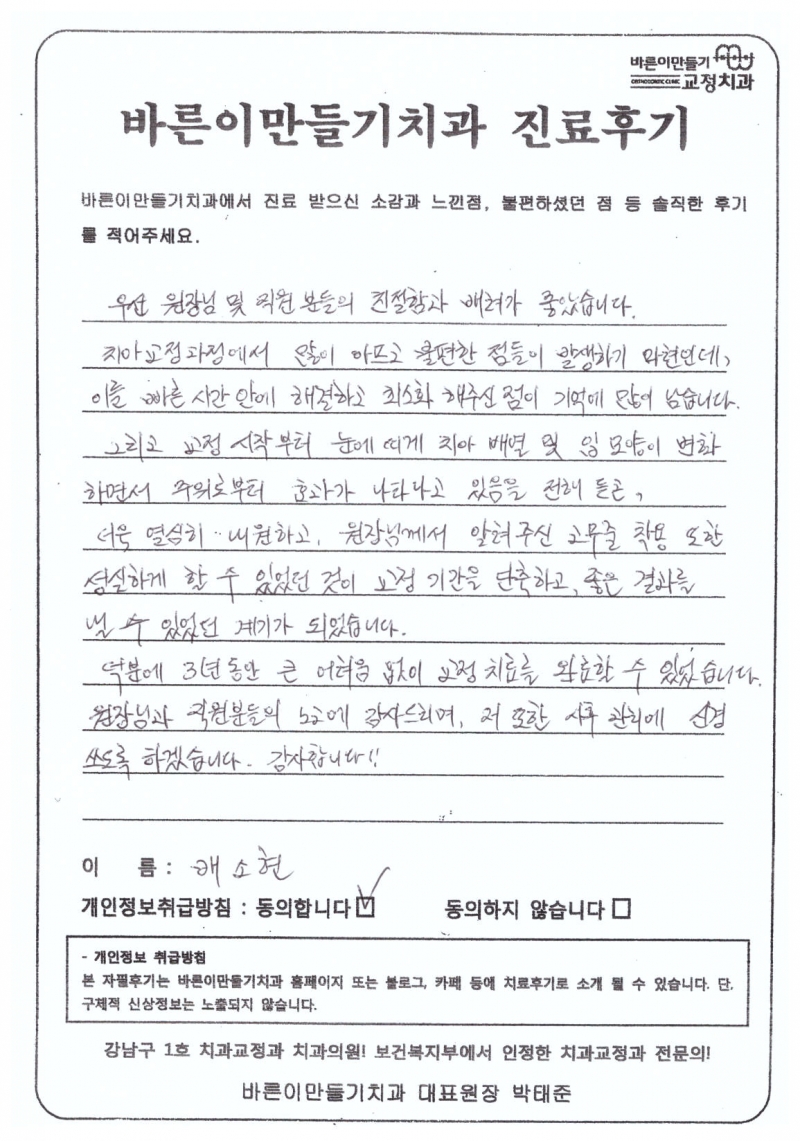 바른이만들기
ORTHODONTIC CLINIC 교정치과
바른이만들기치과 진료후기
바른이만들기치과에서 진료 받으신 소감과 느낀점, 불편하셨던 점 등 솔직한 후기
를 적어주세요.
우선 원장님 및 직원분들의 친절함과 배려가 좋았습니다.
치아교정과정에서 많이 아프고 불편한 점들이 발생하기 마련인데,
이를 빠른 시간 안에 해결하고 최소화 해주신 점이 기억에 많이 남습니다.
그리고 교정 시작부터 눈에 띄게 치아 배열 및 입 모양이 변화
하면서 주위로부터 효과가 나타나고 있음을 전해 듣곤,
더욱 열심히 내원하고, 원장님께서 알려주신 고무줄 착용 또한
성실하게 할 수 있었던 것이 교정 기간을 단축하고, 좋은 결과를
낼 수 있었던 계기가 되었습니다.
덕분에 3년동안 큰 어려움 없이 교정 치료를 완료할 수 있었습니다.
원장님과 직원분들의 노고에 감사드리며, 저 또한 사후 관리에 신경
쓰도록 하겠습니다. 감사합니다!!
이 름 : 배소현
개인정보취급방침 : 동의합니다 ☑ 동의하지 않습니다 □
- 개인정보 취급방침
본 자필후기는 바른이만들기치과 홈페이지 또는 블로그, 카페 등에 치료후기로 소개 될 수 있습니다. 단,
구체적 신상정보는 노출되지 않습니다.
강남구 1호 치과교정과 치과의원! 보건복지부에서 인정한 치과교정과 전문의!
바른이만들기치과 대표원장 박태준